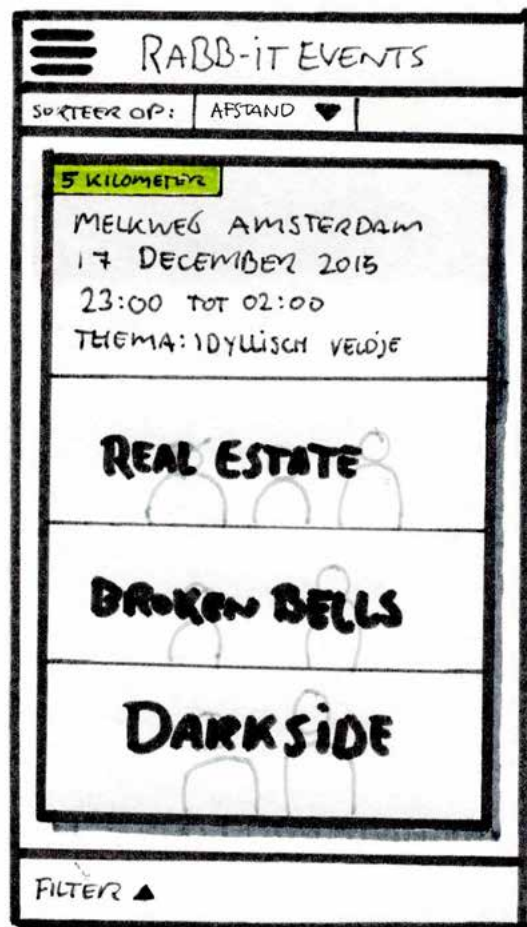 RABB-iT EVENTS
SORTEER OP: AFSTAND
5 KILOMETER
MELKWEG AMSTERDAM
17 DECEMBER 2015
23:00 TOT 02:00
THEMA: IDYLLISCH VELDJE
REAL ESTATE
BROKEN BELLS
DARKSiDE
FILTER